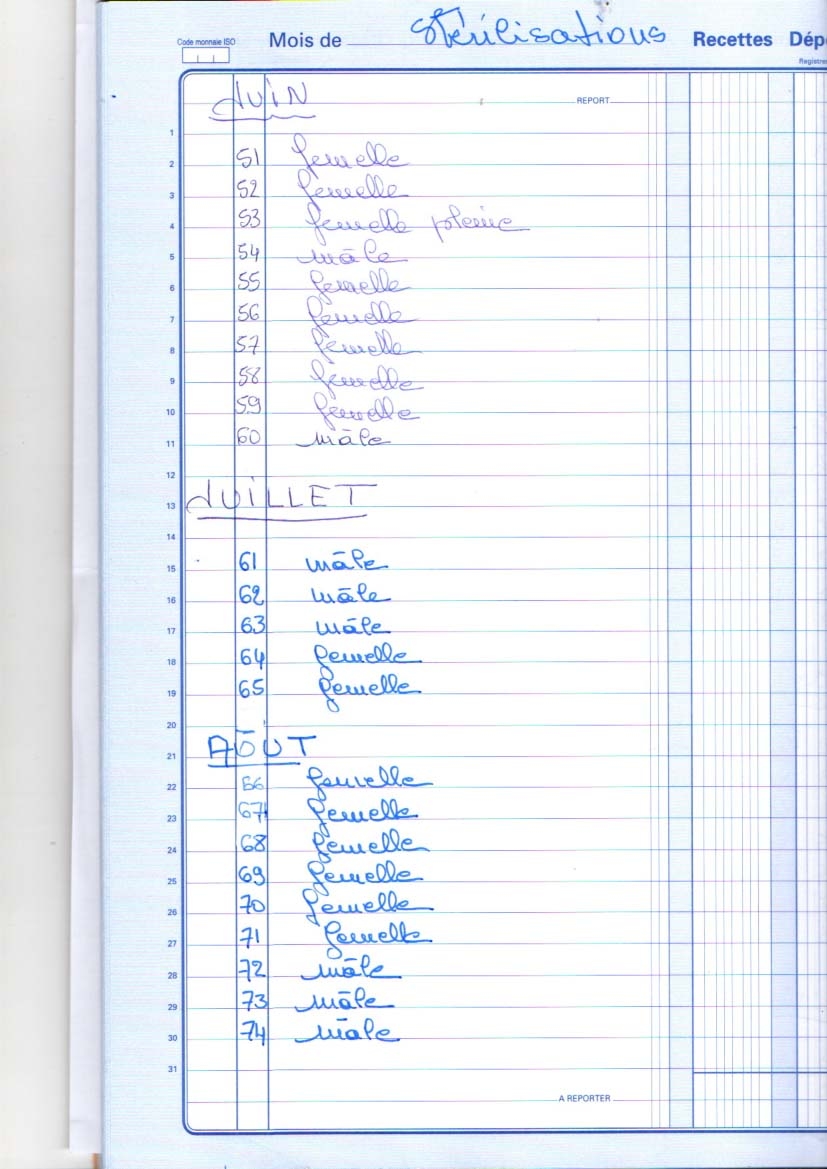 Code monnaie ISO Mois de Stérilisations Recettes Dép
Registre
JUIN REPORT
1
2 51 femelle
3 52 femelle
4 53 femelle pleine
5 54 mâle
6 55 femelle
7 56 femelle
8 57 femelle
9 58 femelle
10 59 femelle
11 60 mâle
12
13 JUILLET
14
15 61 mâle
16 62 mâle
17 63 mâle
18 64 femelle
19 65 femelle
20
21 AOÛT
22 66 femelle
23 67 femelle
24 68 femelle
25 69 femelle
26 70 femelle
27 71 femelle
28 72 mâle
29 73 mâle
30 74 mâle
31
A REPORTER